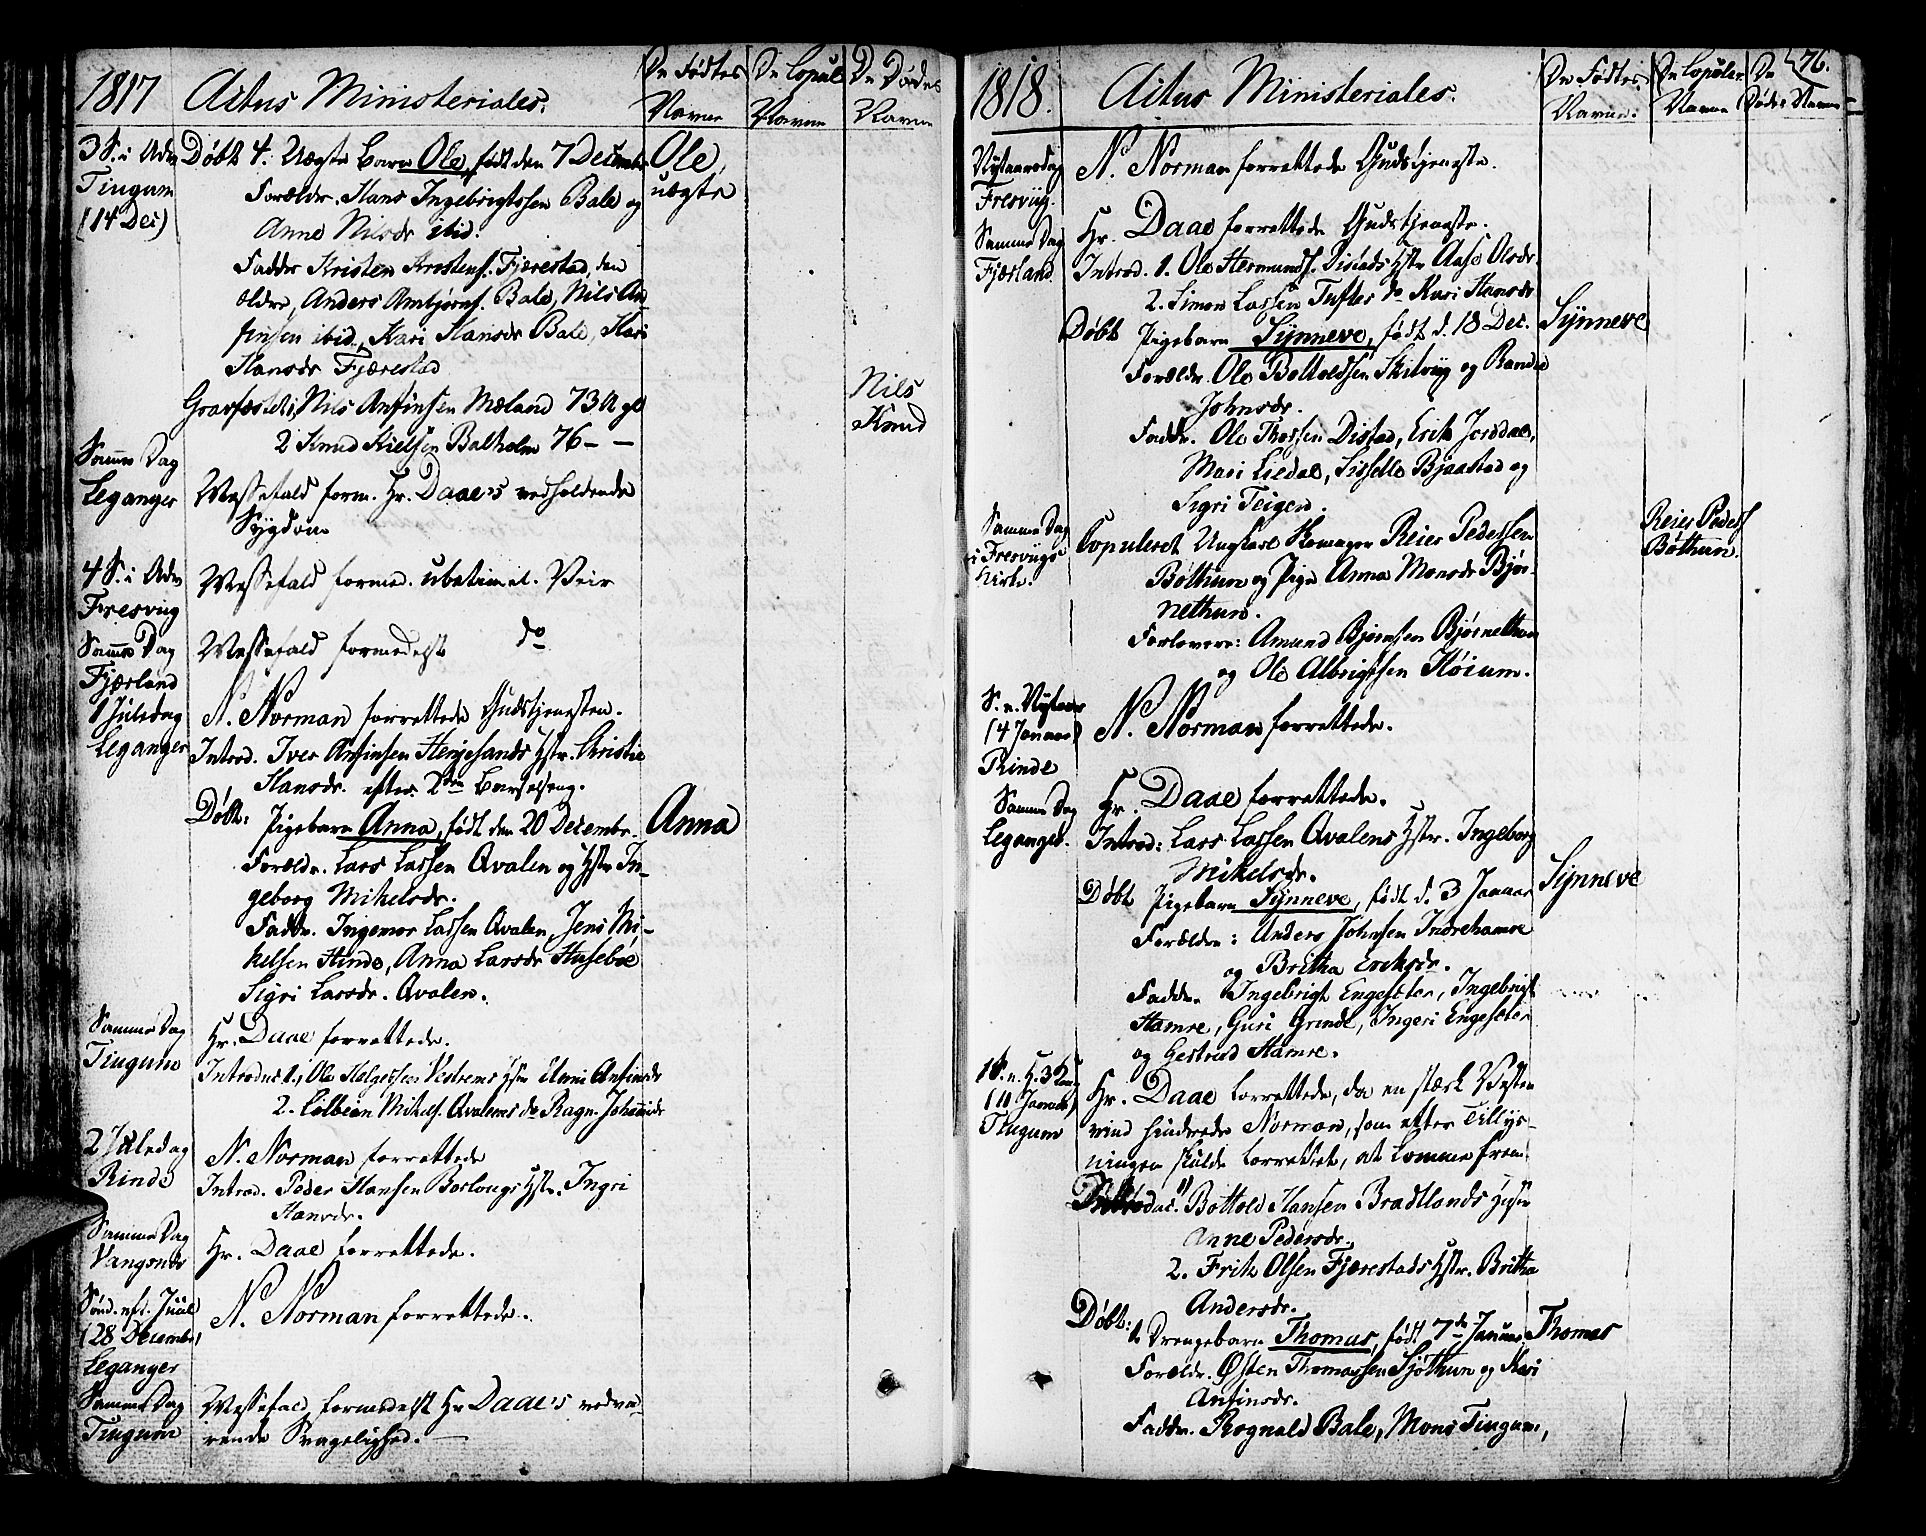 1817 Actus Ministeriales. De Fødtes Navne De Copul Navne De Dødes Navne
3 S. i Adv
Tiugum
(14 Dec)
Døbt 4. Uægte Barn Ole, født den 7 December
Ole,
uægte
Forældr. Hans Ingebrigtssen Bale og
Anne Nilsdr ibid.
Faddr Kristen Kristens. Fjærestad, den
ældre, Anders Ambjørns. Bale, Nils An
finsen ibid., Kari Hansdr Bale, Kari
Hansdr Fjærestad
Gravfæstet 1, Nils Anfinsen Mæland 73 A gl
Nils
2 Knud Kielsen Balholm 76 - -
Knud
Samme Dag
Leganger
Messefald form. Hr. Daae's vedholdende
Sygdom
4 S. i Adv
Fresvig
Messefald formed. ubetiml. Veir
Samme Dag
Fjærland
Messefald formedelst do
1 Juledag
Leganger
N. Norman forrettede Gudstjenesten.
Introd. Iver Anfinsen Henjesands Hstr. Christie
Hansdr. efter 2den Barselseng.
Døbt: Pigebarn Anna, født den 20 Decembr.
Anna
Forældr. Lars Lassen Qvalen og Hstr In-
geborg Mikelsdr.
Faddr. Ingemor Lassen Qvalen, Jens Mi-
kelsen Hinde, Anna Larsdr Husebøe
Sigri Larsdr. Qvalen.
Samme Dag
Tiugum
Hr. Daae forrettede.
Introduc 1., Ole Helgessen Vestrems Hstr Anni Anfinsdr
2. Colbeen Mikels. Qvalems do Ragn. Johannisdr
2 Juledag
Rinde
N. Norman forrettede
Introd. Peder Hansen Borlougs Hstr. Ingri
Hansdr.
Samme Dag
Vangsnes
Hr. Daae forrettede.
Sønd. eft. Juul
(28 December)
Leganger
N. Norman forrettede.
Samme Dag
Tiugum
Messefald formedelst Hr Daae's vedva-
rende Svagelighed.
1818. Actus Ministeriales. De Fødtes Navne: De Copuler Navne De Dødes Navne 76.
Nytaarsdag
Fresviig.
N. Norman forrettede Gudstjeneste.
Samme Dag
Fjærland
Hr. Daae forrettede Gudstjeneste.
Introd. 1. Ole Hermunds. Distads Hstr Aase Olsdr.
2. Simon Lassen Tuftes do Kari Hansdr
Døbt Pigebarn Synneve, født d. 18 Dec.
Synneve
Forældr. Ole Botholdssen Skitviig og Randie
Johnsdr.
Faddr. Ole Thorsen Distad, Erik Jorddal,
Mari Liedal, Sisselle Bjaastad og
Sigri Teigen.
Samme Dag
i Fresvigs
Kirke.
Copuleret Ungkarl Reier Pedersen
Reier Peders
Bøthun og Pige Anna Monsdr Bjør-
Bøthun.
nethun.
Forlovere: Amund Bjørnsen Bjørnethun
og Ole Albrigtsen Høium.
S. e. Nytaar
(4 Januar)
Rinde
N. Norman forrettede.
Samme Dag
Leganger.
Hr. Daae forrettede.
Introd: Lars Lassen Qvalens Hstr. Ingeborg
Mikelsdr.
Døbt Pigebarn Synneve, født d. 3 Januar
Synneve
Forældre: Anders Johnsen Indrehamre
og Britha Eriksdr.
Faddr. Ingebrigt Engesæter, Ingebrigt
Hamre, Guri Grinde, Ingeri Engesæter
og Gertrud Hamre.
1 S. e. H. 3 Kong
(11 Januar)
Tiugum
Hr. Daae forrettede, da en stærk Vesten
vind hindrede Norman, som efter Tillys-
ningen skulde forrettet, at komme frem.
Introduc. 1) Bottold Hansen Bradtlands Hstr
Anne Pedersdr.
2. Frik Olsen Fjærestads Hstr. Britha
Andersdr.
Døbt: 1. Drengebarn Thomas, født 7de Januar
Thomas
Forældr. Østen Thomassen Sjøthun og Kari
Anfinsdr.
Faddr. Rognald Bale, Mons Tiugum,